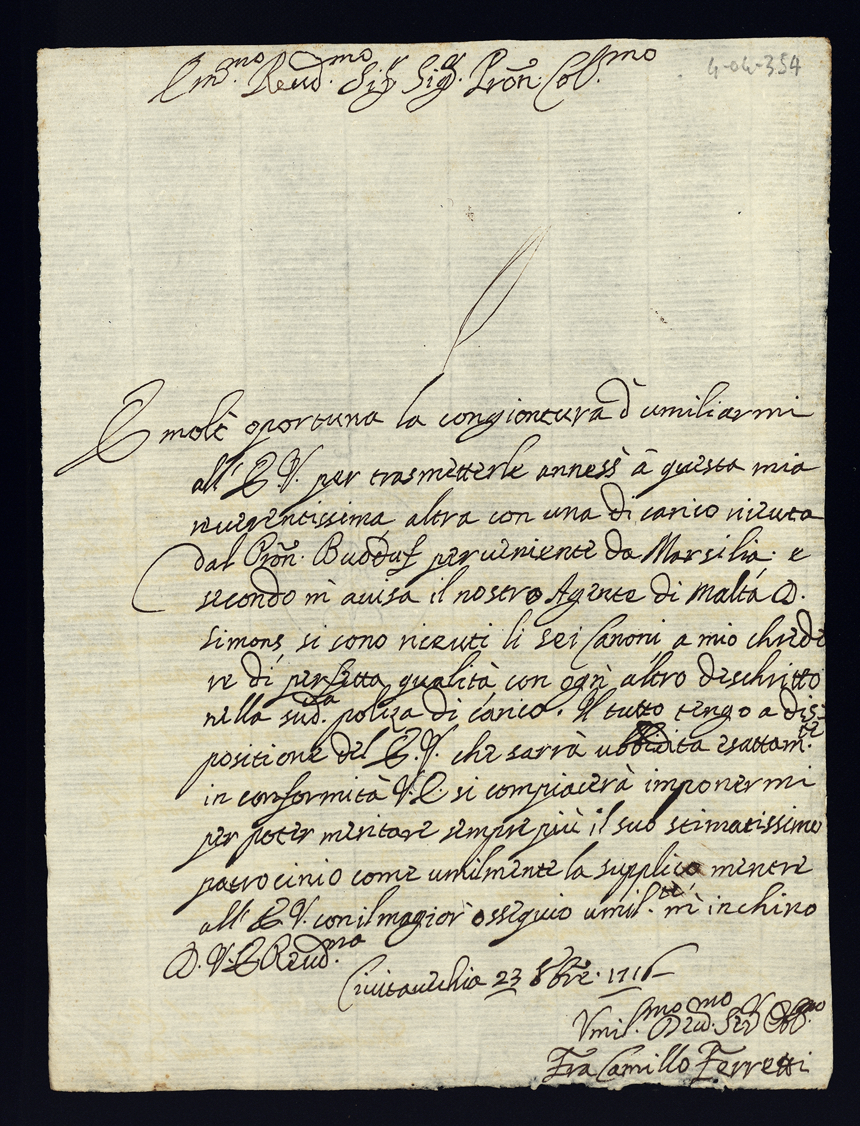 Em.mo Reud.mo Sig.r Sig.r Pron: Col.mo
4-04-354
È molt' oportuna la congiontura d'umiliarmi
all' E.V. per trasmetterle anness' à questa mia
riuerentissima altra con una di carico riceuta
dal Pron. perueniente da Marsilia. e
secondo m'auisa il nostro Agente di Malta D.
Simons si sono riceuti li sei Canoni a mio chiede
re di perfetta qualità con ogni altro descritto
nella sud.ta poliza di carico. Il tutto tengo a dis=
positione del E.V. che sarrà ubbidita esattam.te
in conformità V.E. si compiacerà impormermi
per poter meritare sempre più il suo stimatissimo
patrocinio come umilmente la supplico mentre
all' E.V. con il magior' ossequio umil.te m'inchino
D. V. E Reud.ma
Ciuitauechia 23 8bre. 1716
Vmil.mo Deu.mo Ser.r Obb.mo
Fra Camillo Ferretti